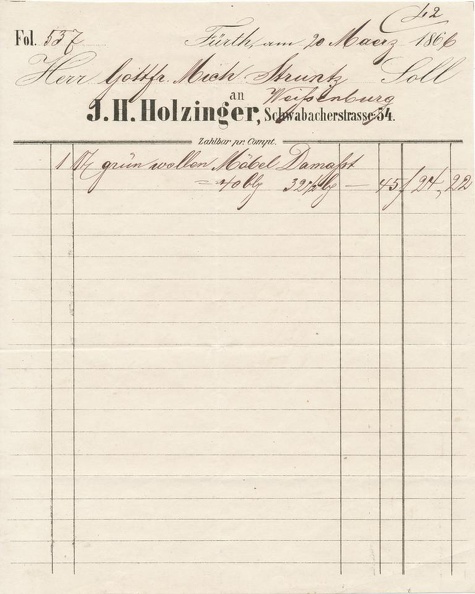 42
Fol. 537 Fürth, am 20 Maerz 1866
Herr Gottfr. Mich Struntz Soll
an Weißenburg
J. H. Holzinger, Schwabacherstrasse 54.
Zahlbar pr. Compt.
1 grün wollen Möbel Damast
= 70 32½ — 45 24, 22